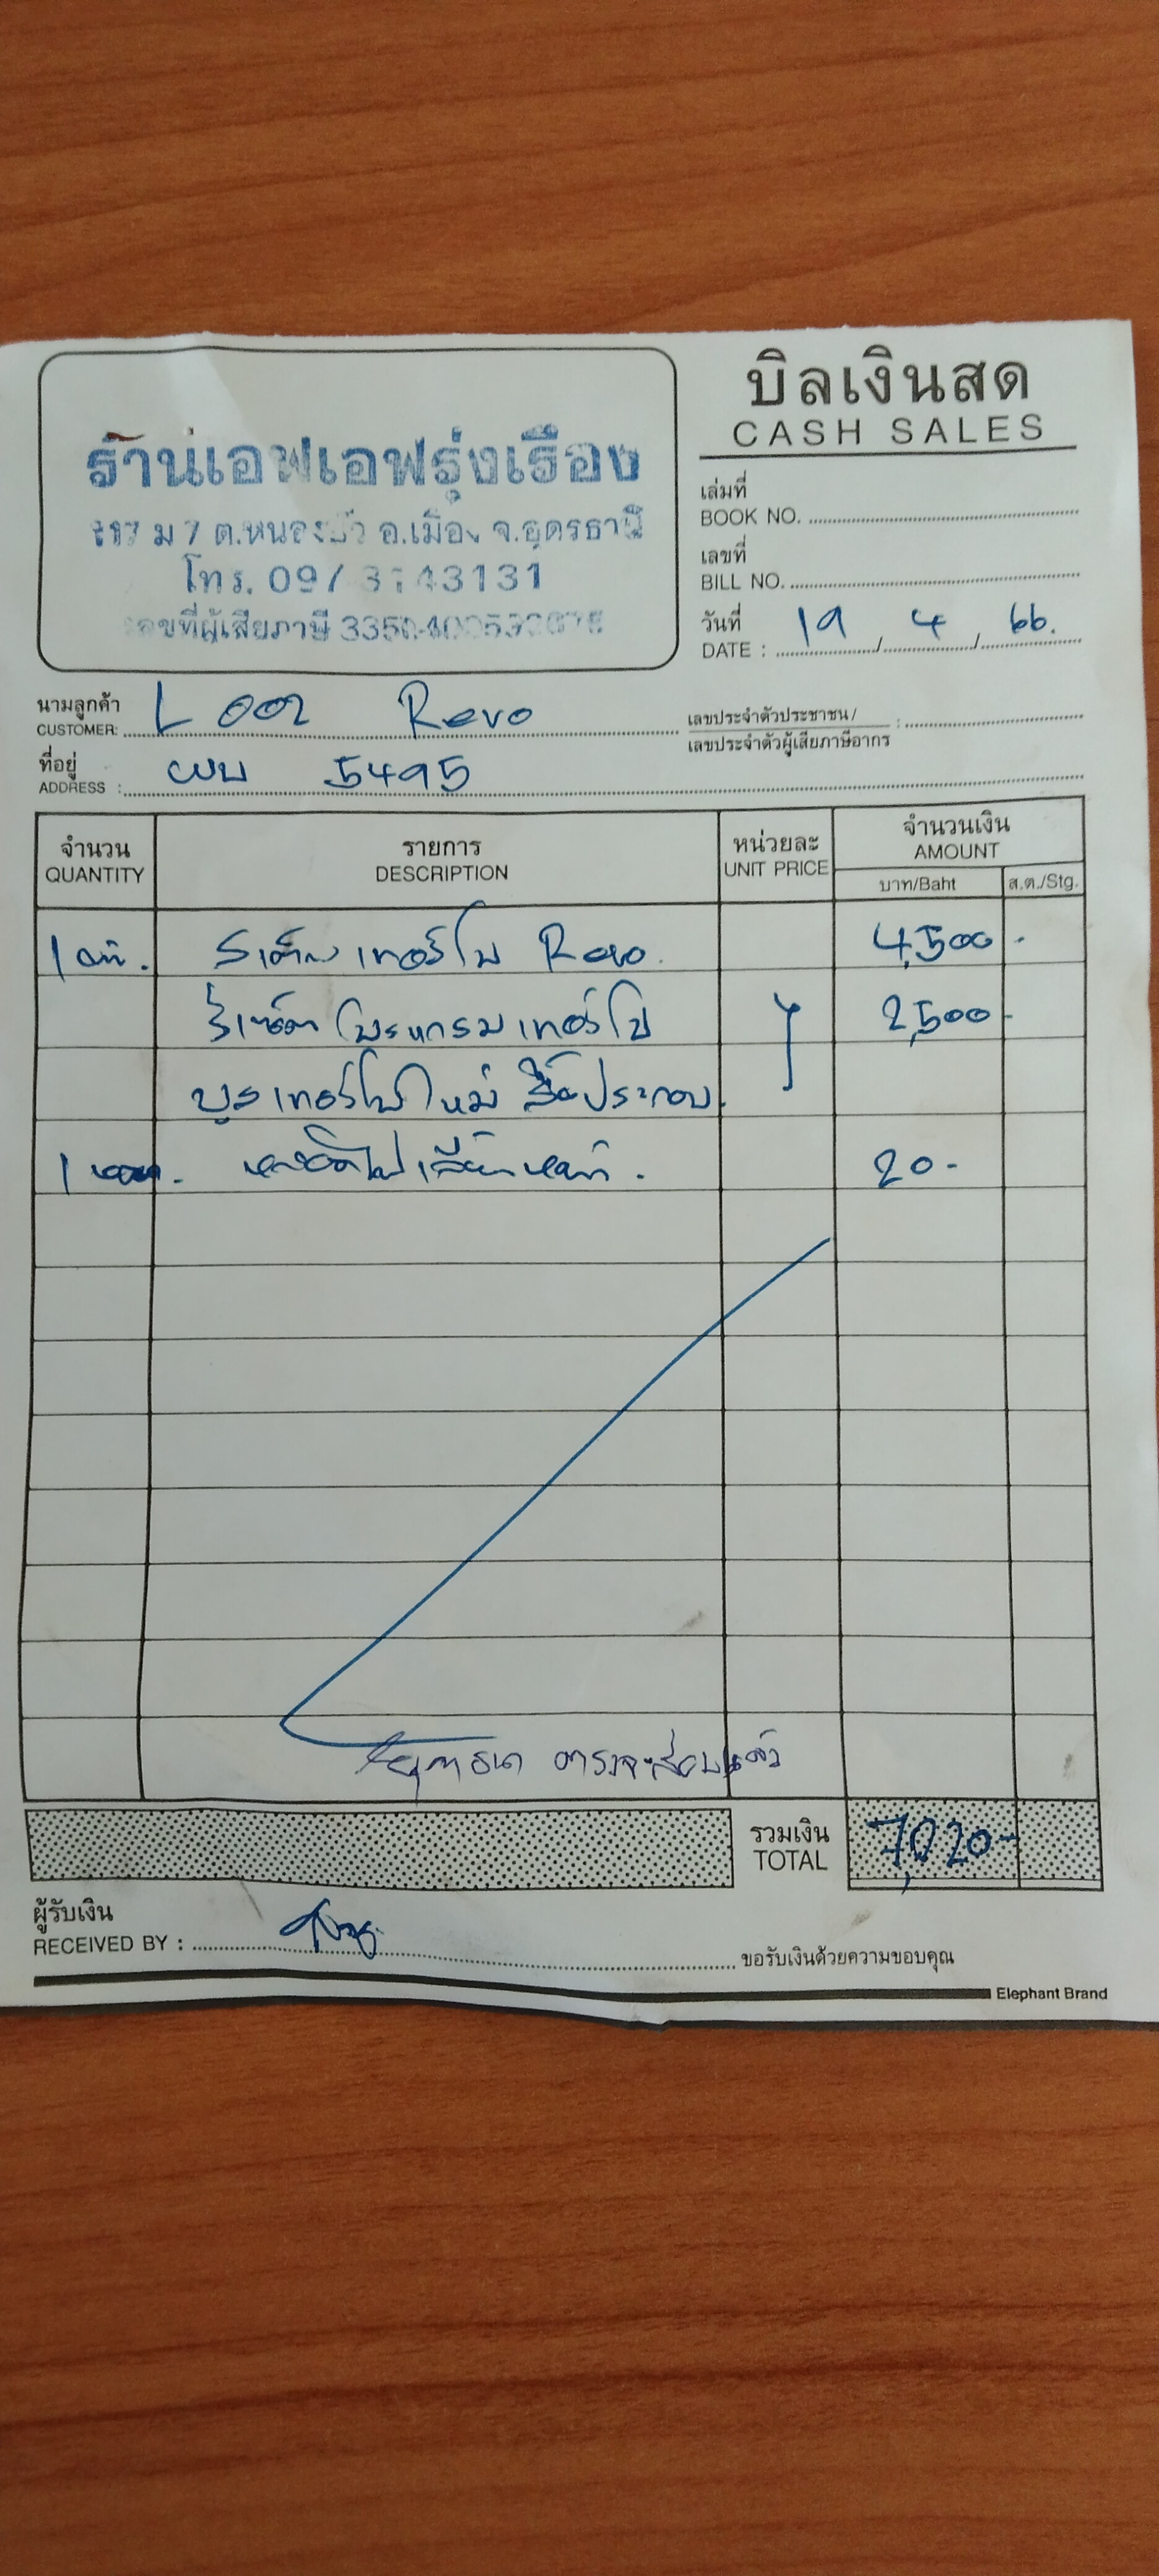 บิลเงินสด
CASH SALES
ร้านเอฟเอฟรุ่งเรือง
ม 7 ต.หนองบัว อ.เมือง จ.อุดรธานี
โทร.
เลขที่ผู้เสียภาษี
เล่มที่
BOOK NO.
เลขที่
BILL NO.
วันที่
DATE : 19 / 4 / 66.
นามลูกค้า
CUSTOMER: L 002 Revo
เลขประจำตัวประชาชน /
เลขประจำตัวผู้เสียภาษีอากร :
ที่อยู่
ADDRESS : ผบ 5495
จำนวน รายการ หน่วยละ จำนวนเงิน
QUANTITY DESCRIPTION UNIT PRICE AMOUNT
บาท/Baht ส.ต./Stg.
1 เทอร์โบ Revo. 4,500 -
รีเซ็ต โปรแกรม เทอร์โบ 2,500 -
เทอร์โบใหม่ ประกอบ.
1 หลอดไฟเลี้ยวหน้า. 20 -
ตรวจสอบแล้ว
รวมเงิน
TOTAL 7,020 -
ผู้รับเงิน
RECEIVED BY :
ขอรับเงินด้วยความขอบคุณ
Elephant Brand